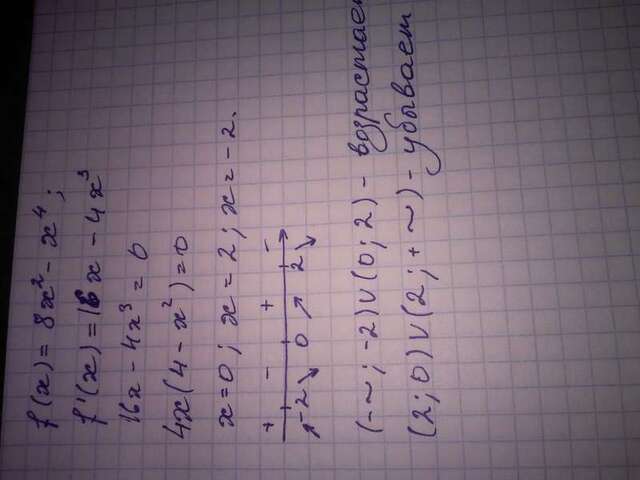 f(x) = 8x² - x⁴;
f'(x) = 16x - 4x³
16x - 4x³ = 0
4x(4 - x²) = 0
x = 0; x = 2; x = -2.
+ - + -
↗ -2 ↘ 0 ↗ 2 ↘
(-~; -2) ∪ (0; 2) - возрастает
(2; 0) ∪ (2; +~) - убывает